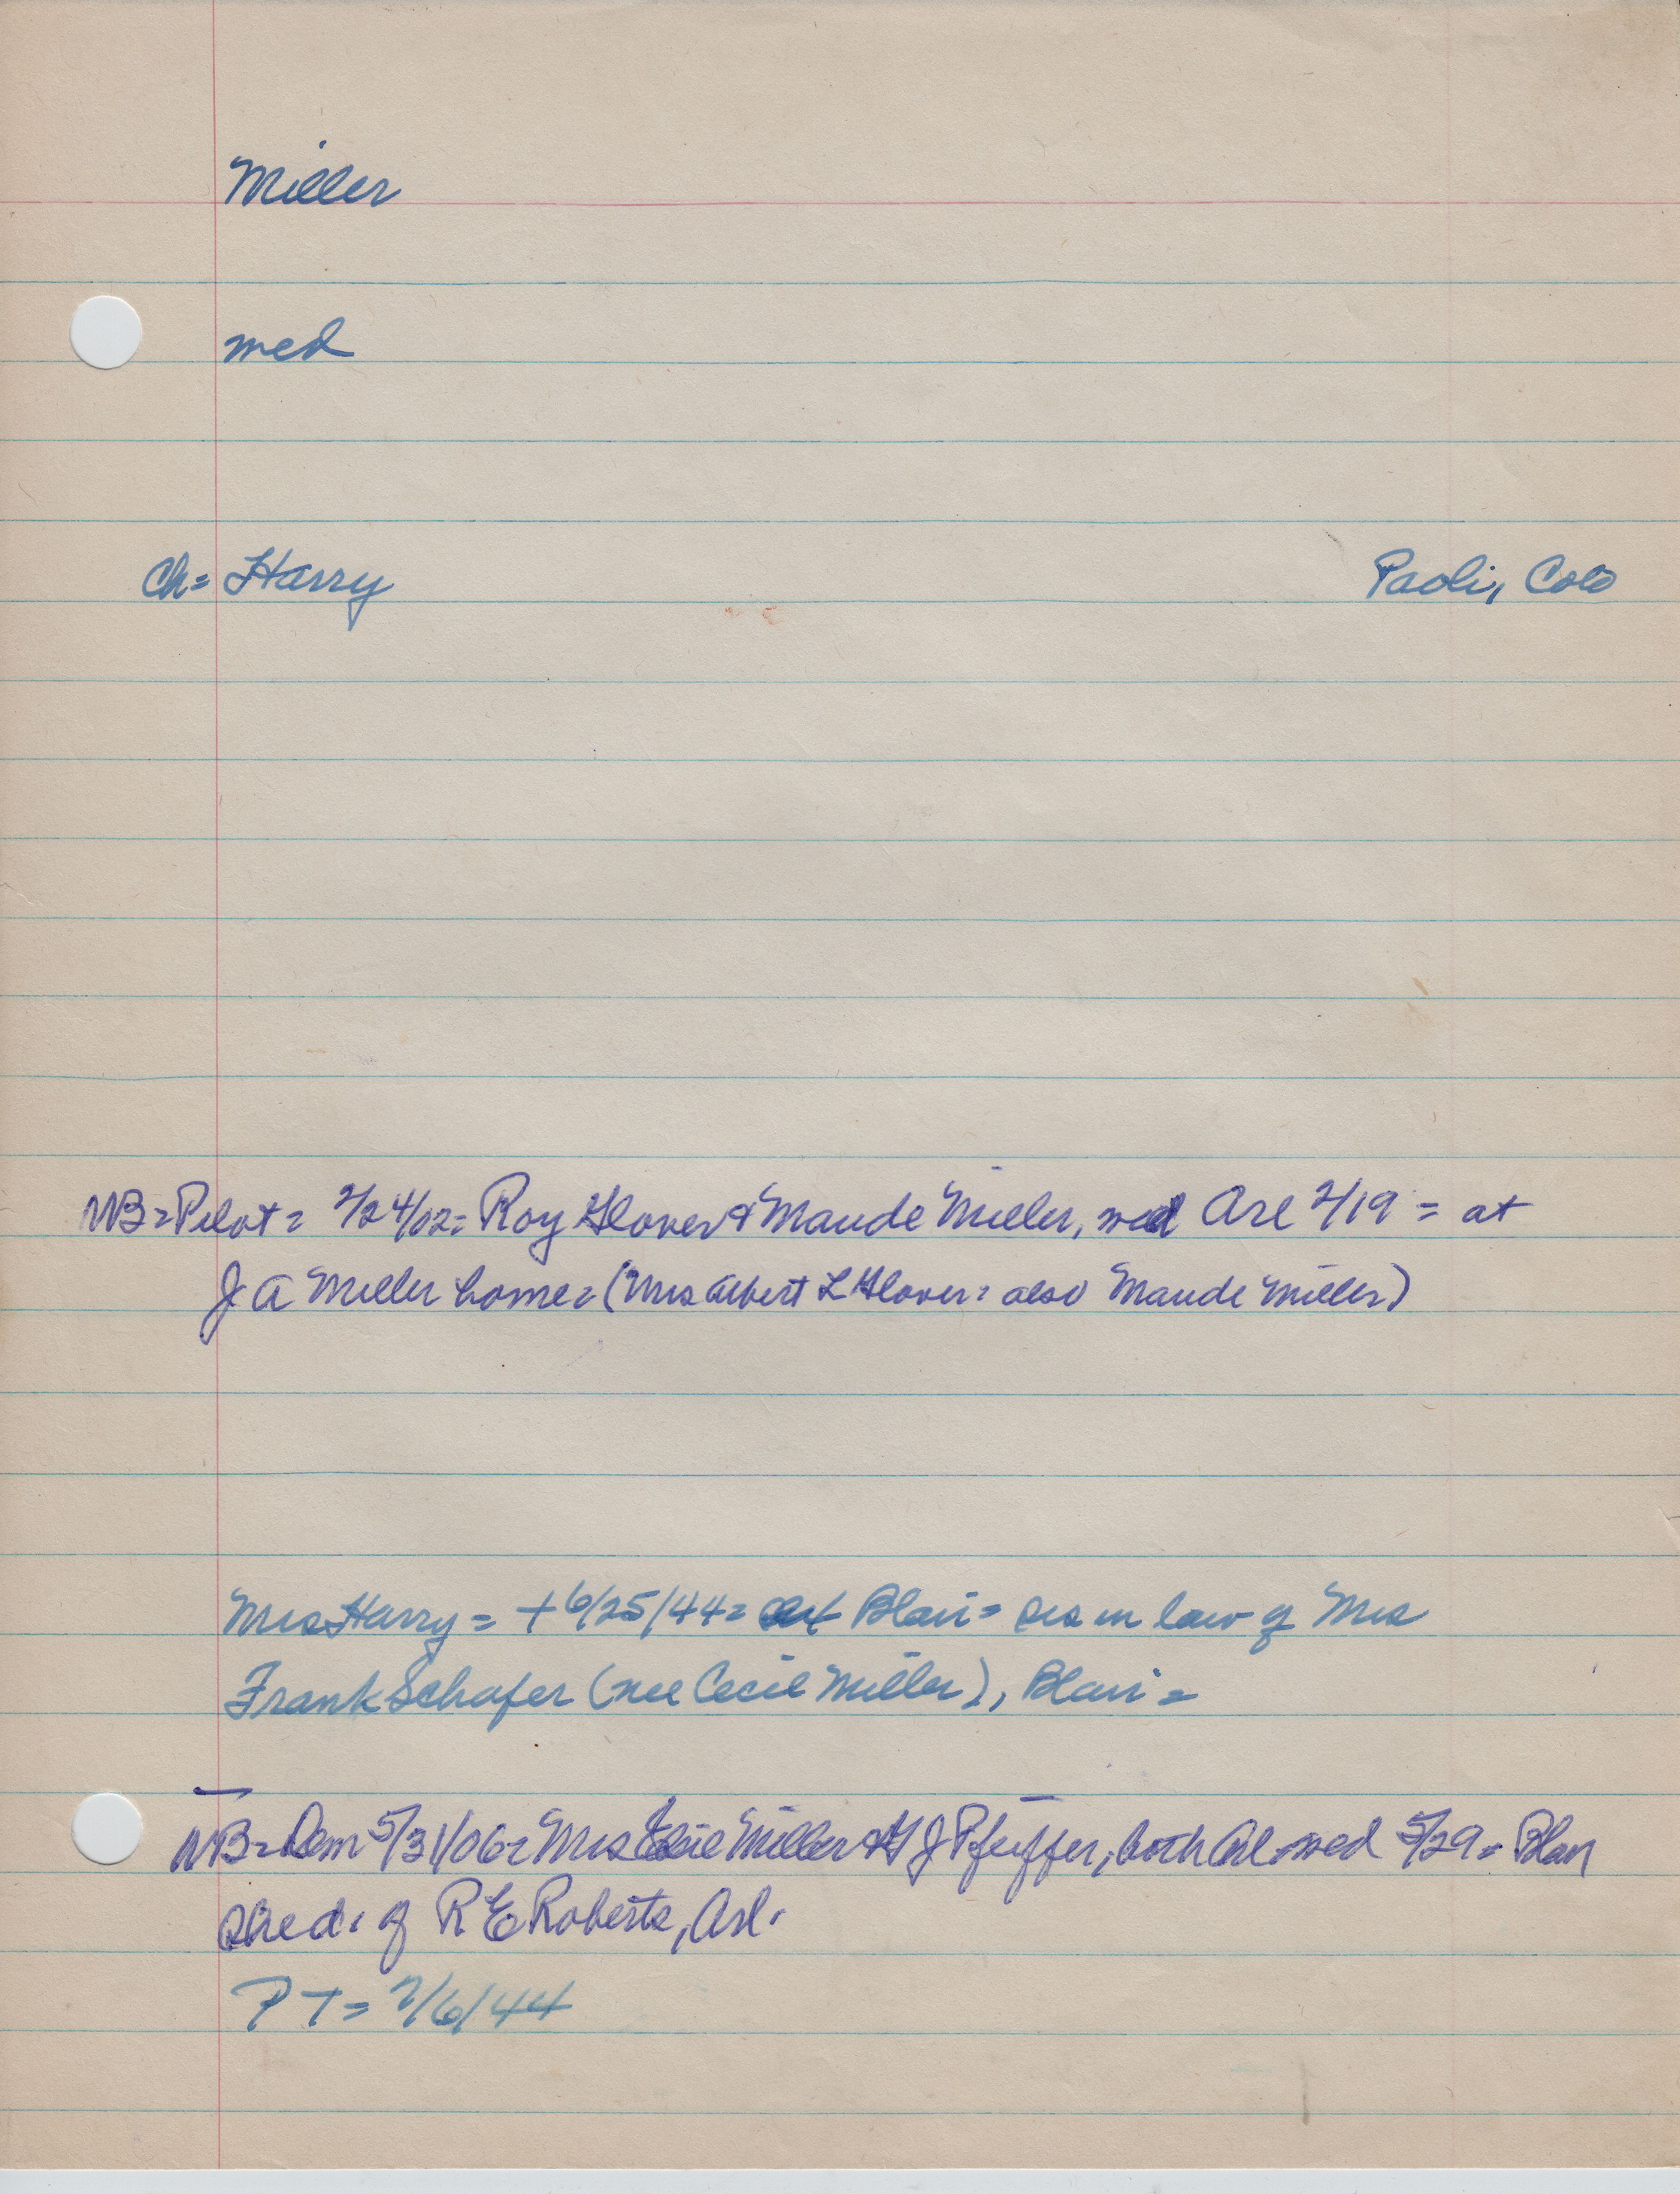 Miller
med
Ch= Harry Paoli, Colo
NB=Pilot= 2/24/02= Roy Glover & Maude Miller, med Arl 2/19 = at
J A Miller home= (Mrs Albert L Glover= also Maude Miller)
Mrs Harry = + 6/25/44= at Blair= sis in law of Mrs
Frank Schafer (nee Cecil Miller), Blair=
NB=Dem 5/31/06= Mrs Miller & J Pfeiffer, both Arl=med 5/29= Blair
of R E Roberts, Arl.
PT= 7/6/44